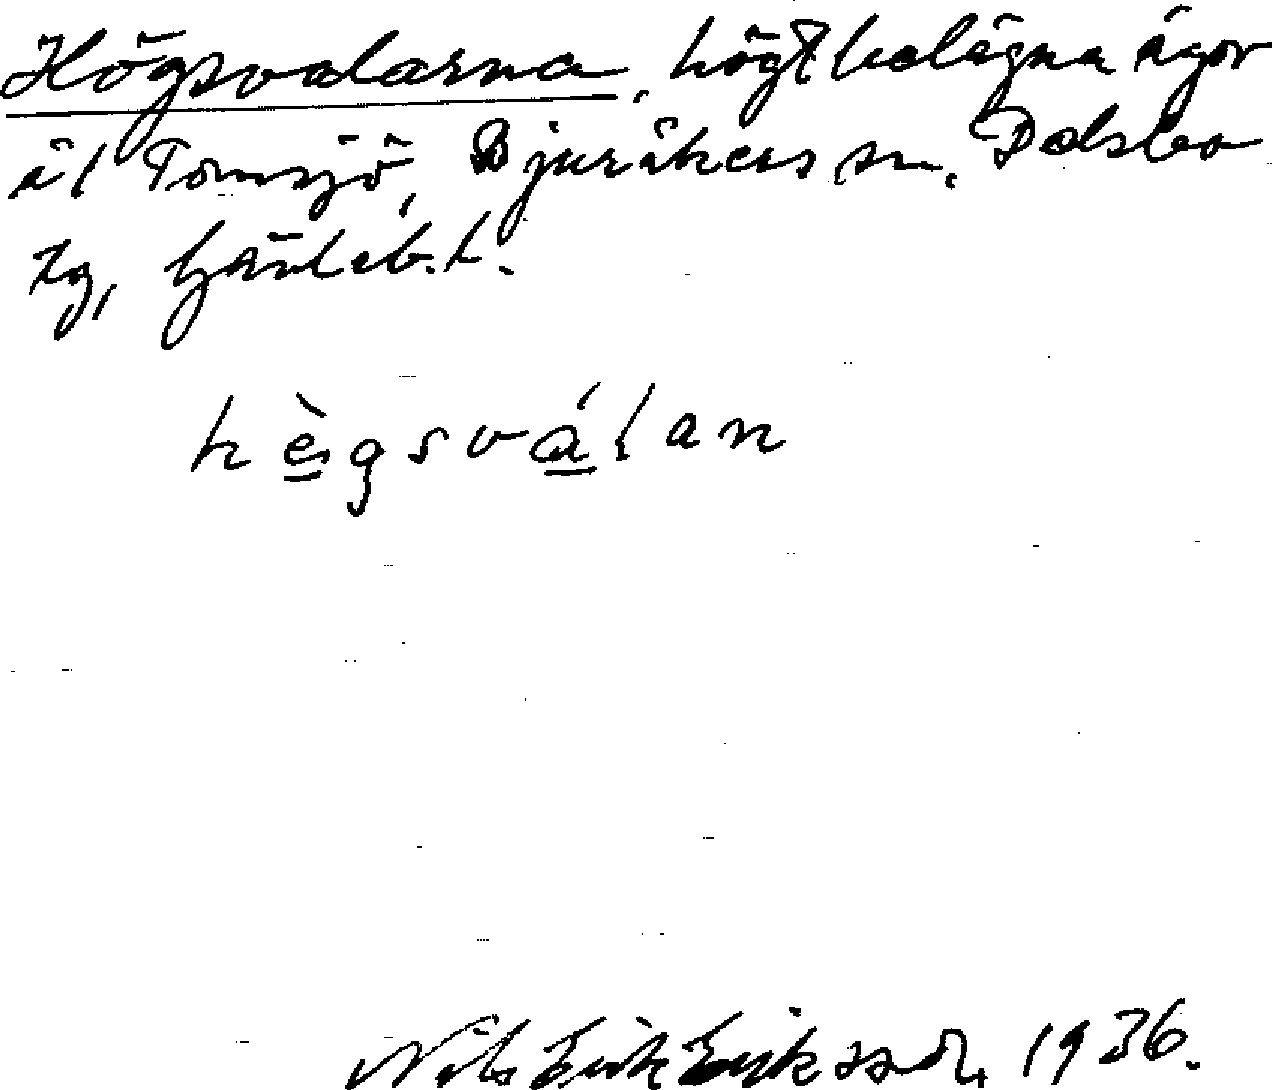 Högsvalarna, högt belägna ägor
åt Tomsjö, Bjuråkers sn. Delsbo
tg, Gävleb. l.
hègsválan
Nils Erik Eriksson, 1936.